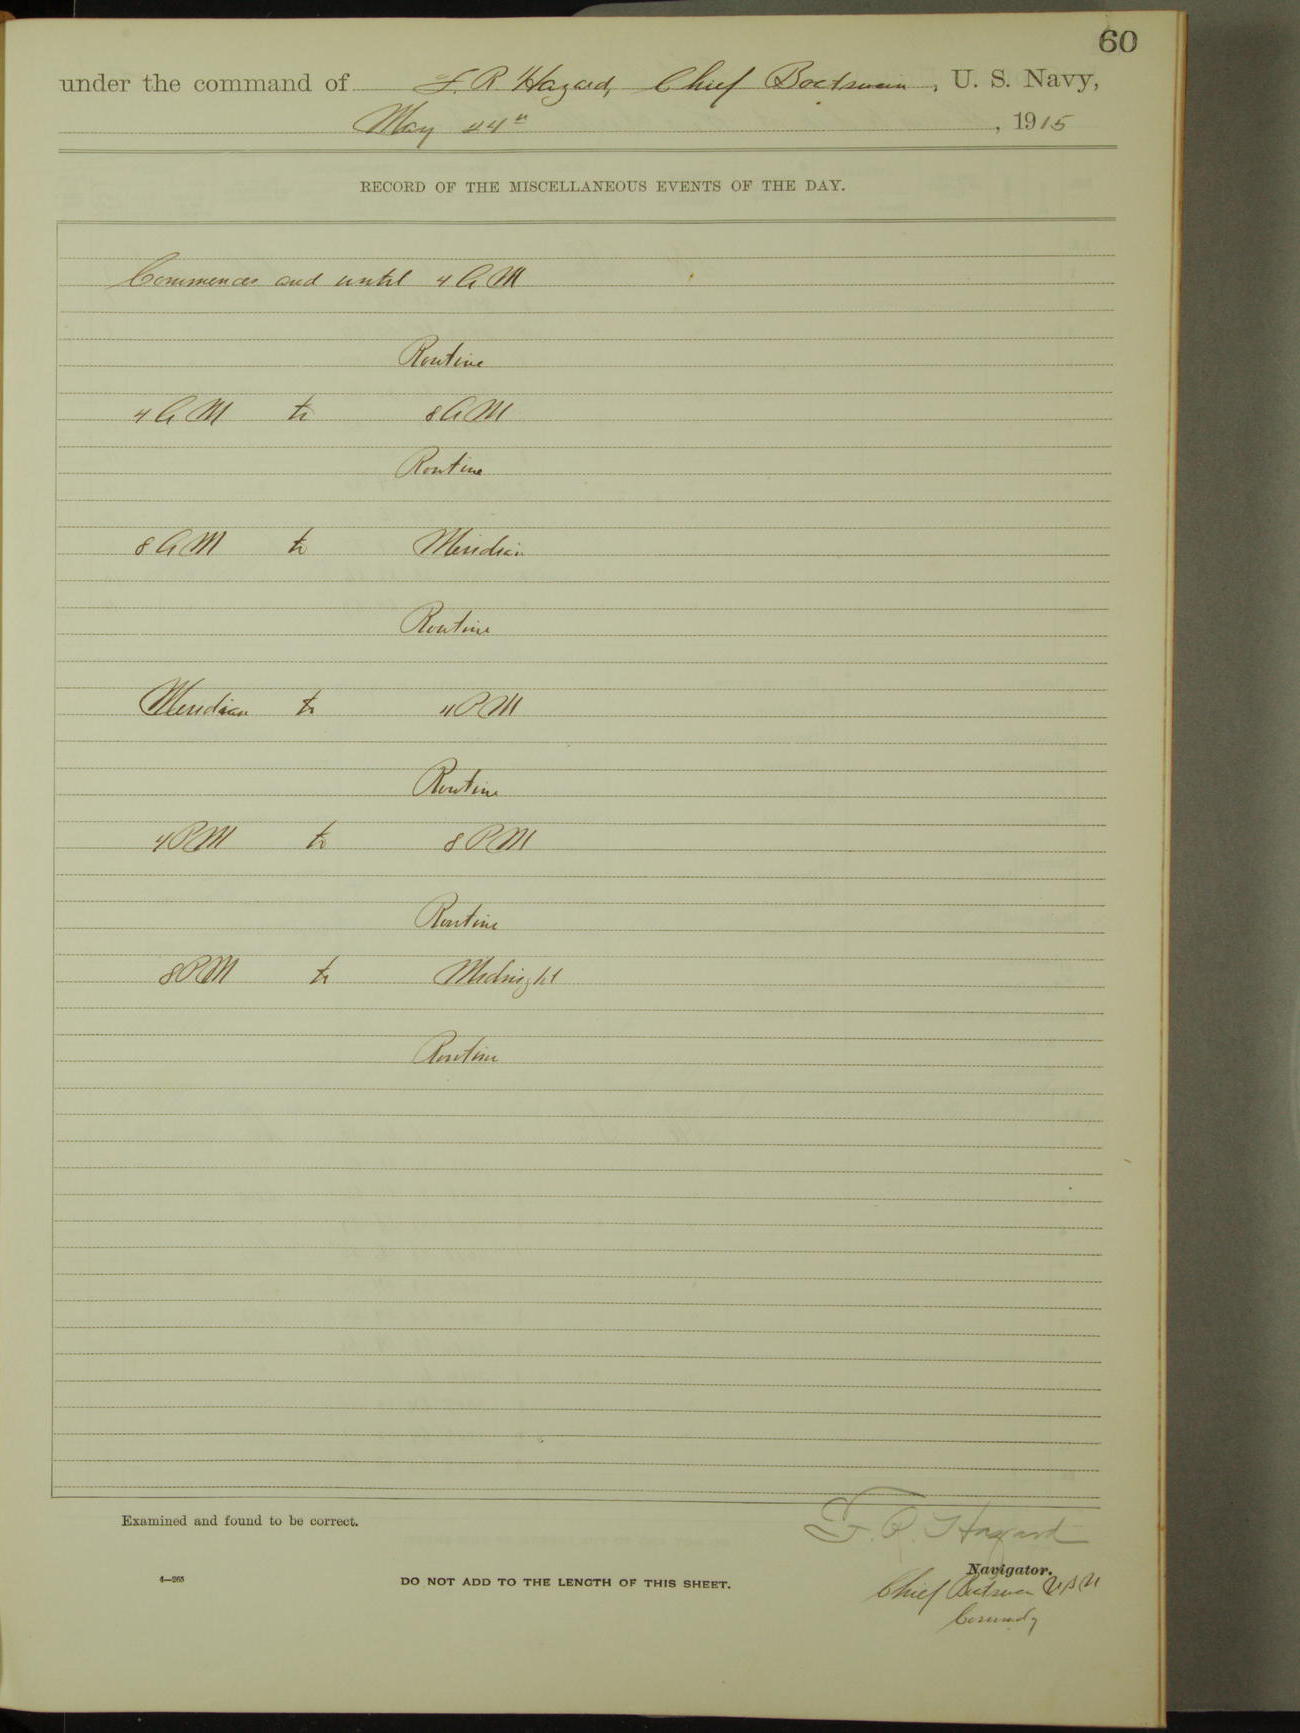 60
under the command of F. R. Hazard, Chief Boatswain, U. S. Navy,
May 24th, 1915
RECORD OF THE MISCELLANEOUS EVENTS OF THE DAY.
Commences and until 4 AM
Routine
4 AM to 8 AM
Routine
8 AM to Meridian
Routine
Meridian to 4 PM
Routine
4 PM to 8 PM
Routine
8 PM to Midnight
Routine
Examined and found to be correct.
F. R. Hazard
Navigator.
4—265
DO NOT ADD TO THE LENGTH OF THIS SHEET.
Chief Boatswain USN
Comndg